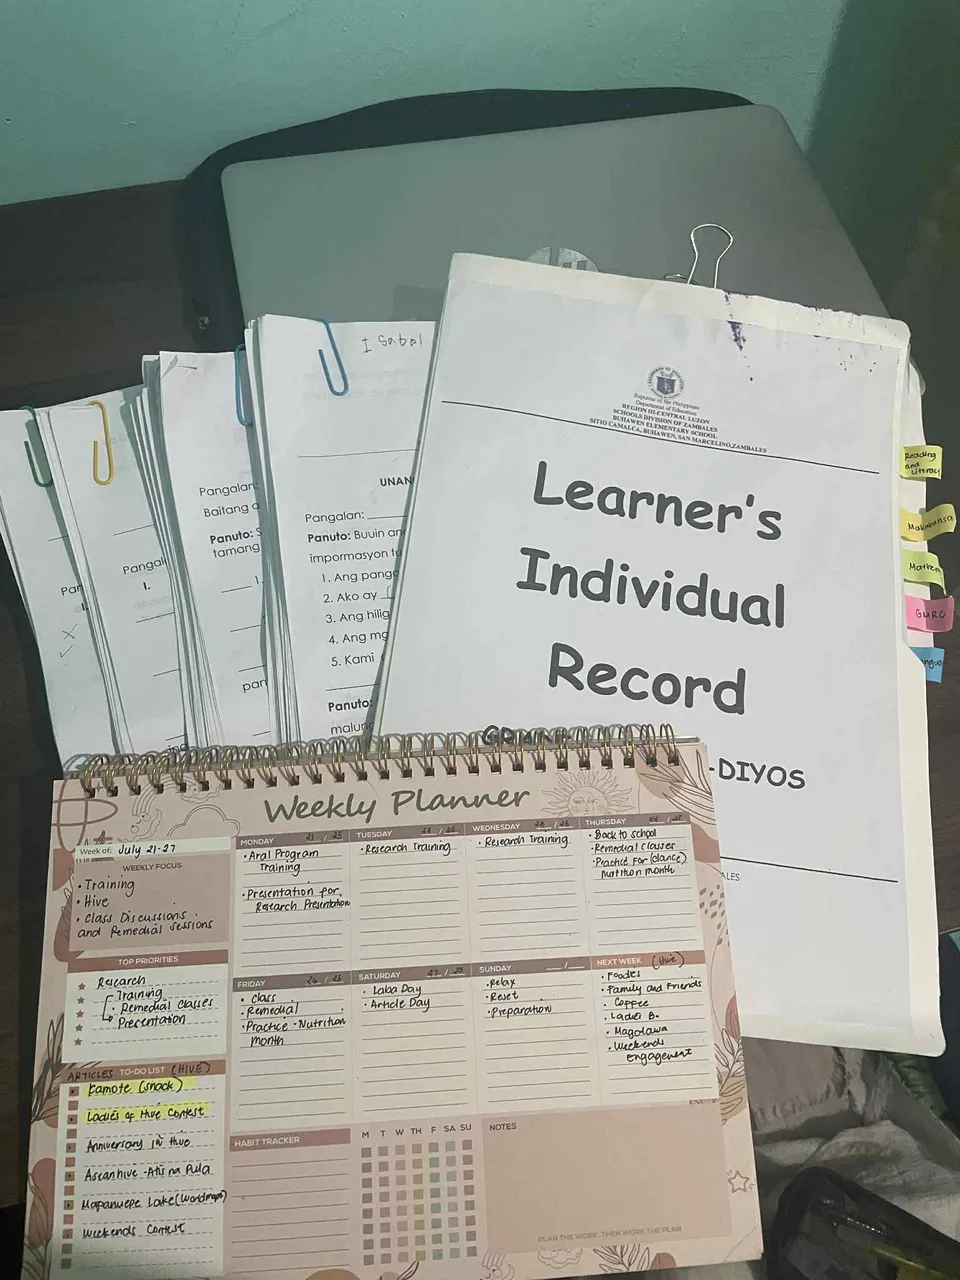 I sabel
Republic of the Philippines
Department of Education
REGION III-CENTRAL LUZON
SCHOOLS DIVISION OF ZAMBALES
BUHAWEN ELEMENTARY SCHOOL
SITIO CAMALCA, BUHAWEN, SAN MARCELINO, ZAMBALES
Learner's
Individual
Record
-DIYOS
ALES
Reading
and
Literacy
Makabansa
Mathem
GMRC
Pangal
I.
Pangalan:
Baitang a
Panuto: S
tamang
I.
pan
UNAN
Pangalan:
Panuto: Buuin an
impormasyon tu
1. Ang panga
2. Ako ay
3. Ang hilig
4. Ang mg
5. Kami
Panuto:
malung
Weekly Planner
Week of: July 21-27
WEEKLY FOCUS
• Training
• Hive
• Class Discussions
and Remedial Sessions
TOP PRIORITIES
Research
Training
• Remedial Classes
Presentation
ARTICLES TO-DO LIST (HIVE)
Kamote (snack)
Ladies of Hive Contest
Anniversary in Hive
Ascenhive - Atis na Pula
Mapanuepe Lake (Worldmappin)
Weekends Contest
MONDAY 21 / 25
• Aral Program
Training
• Presentation for
Research Presentation
TUESDAY
• Research Training
WEDNESDAY
• Research Training
THURSDAY
• Back to school
• Remedial classes
• Practice for (dance)
Nutrition month
FRIDAY
• Class
• Remedial
• Practice - Nutrition
month
SATURDAY
• Laba Day
• Article Day
SUNDAY __/__
• Relax
• Reset
• Preparation
NEXT WEEK (Hive)
• Foodies
• Family and Friends
• Coffee
• Ladies B.
• Magdawa
• Weekends
Engagement
HABIT TRACKER
M T W TH F SA SU
NOTES
PLAN THE WORK, THEN WORK THE PLAN